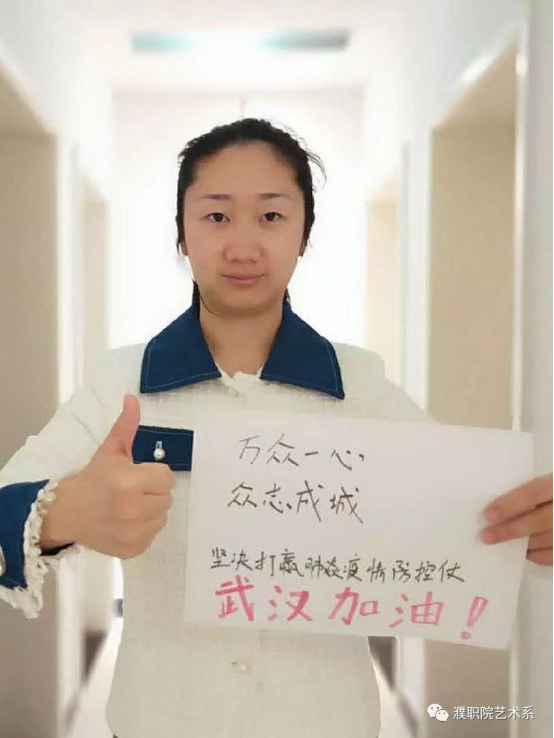 万众一心,
众志成城
坚决打赢肺炎疫情防控仗
武汉加油!
濮职院艺术系